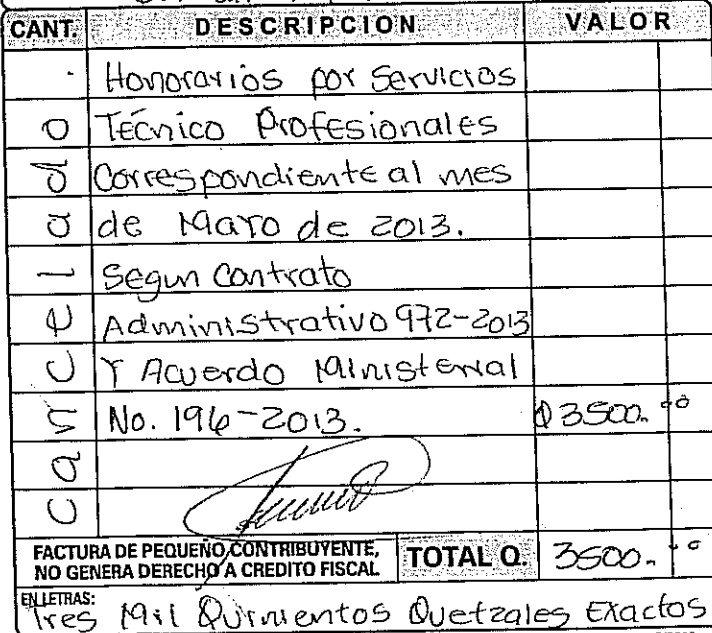 CANT. DESCRIPCION VALOR
Honorarios por Servicios
Técnico Profesionales
Correspondiente al mes
de Mayo de 2013.
Segun Contrato
Administrativo 972-2013
Y Acuerdo Ministerial
No. 196-2013. Q3500.00
Cancelado
FACTURA DE PEQUEÑO CONTRIBUYENTE,
NO GENERA DERECHO A CREDITO FISCAL
TOTAL Q. 3500.
EN LETRAS:
Tres Mil Quinientos Quetzales Exactos